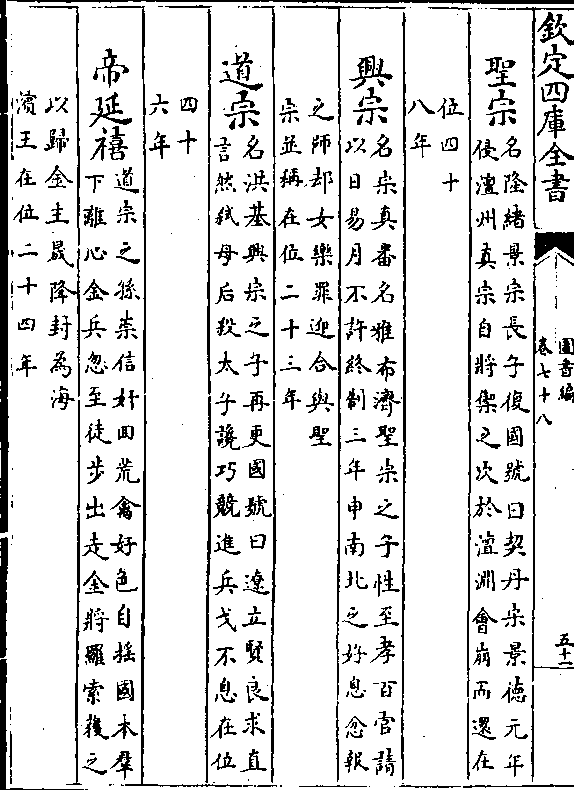 欽定四庫全書
圖書編
卷七十八
五十二
聖宗
名隆緒景宗長子復國號曰契丹宋景德元年
侵澶州真宗自將禦之次於澶淵會崩而還在
位四十
八年
興宗
名宗真番名雅布濟聖宗之子性至孝百官請
以日易月不許終制三年申南北之好息忿報
之師却女樂罪迎合與聖
宗並稱在位二十三年
道宗
名洪基興宗之子再更國號曰遼立賢良求直
言然弑母后殺太子讒巧競進兵戈不息在位
四十
六年
帝延禧
道宗之孫崇信奸回荒禽好色自揺國本羣
下離心金兵忽至徒步出走金將羅索獲之
以歸金主晟降封為海
濱王在位二十四年